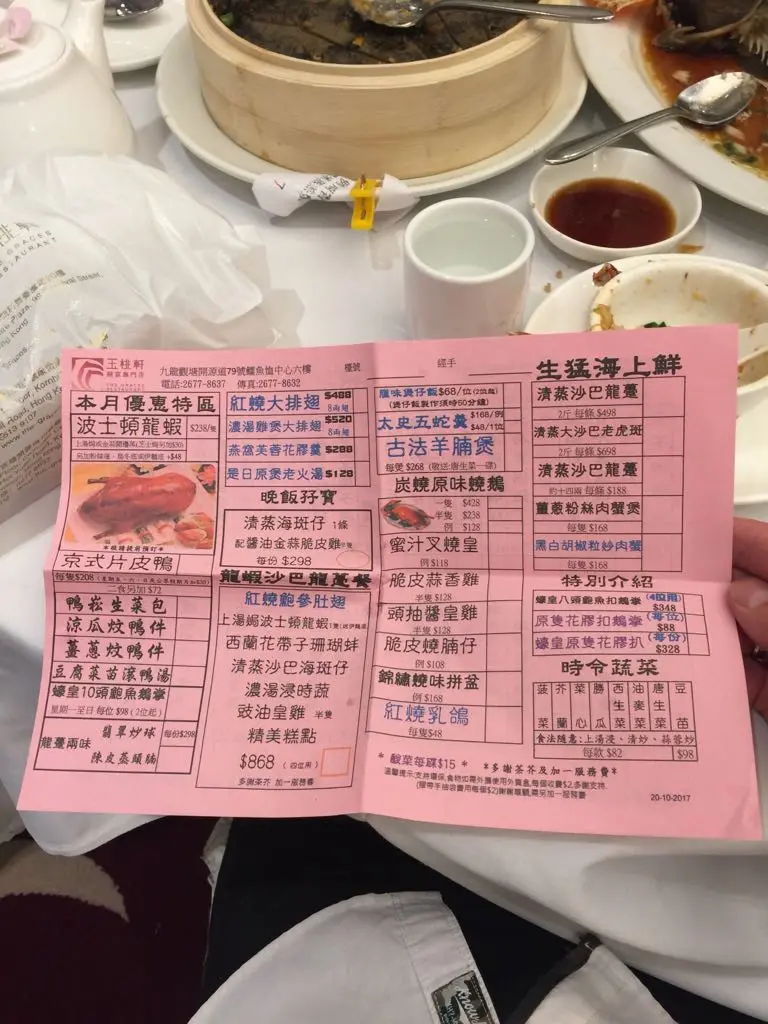 玉桃軒
九龍觀塘開源道79號鱷魚恤中心六樓
電話:2677-8637 傳真:2677-8632
檯號
經手
本月優惠特區
波士頓龍蝦 $238/隻
另加粉絲煲、烏冬底或伊麵底 +$48
京式片皮鴨
二食另加 $72
鴨崧生菜包
涼瓜炆鴨件
薑蔥炆鴨件
豆腐菜苗滾鴨湯
蠔皇10頭鮑魚鵝掌
星期一至日 每位 $98 (2位起)
龍躉兩味
翡翠炒球
每份$298
陳皮蒸頭腩
紅燒大排翅 $488
8両翅
濃湯雞煲大排翅 $520
8両翅
燕窩芙蓉花膠羹 $288
是日原煲老火湯 $128
晚飯孖寶
清蒸海斑仔 1條
配醬油金蒜脆皮雞
每份 $298
龍蝦沙巴龍躉餐
紅燒鮑參肚翅
上湯焗波士頓龍蝦
西蘭花帶子珊瑚蚌
清蒸沙巴海斑仔
濃湯浸時蔬
豉油皇雞 半隻
精美糕點
$868 (四位用)
多謝茶芥 加一服務費
臘味煲仔飯$68/位(2位起)
(煲仔飯製作須時50分鐘)
太史五蛇羹 $168/例
$48/1位
古法羊腩煲
每煲 $268 (敬送:唐生菜一碟)
炭燒原味燒鵝
一隻 $428
半隻 $238
例 $128
蜜汁叉燒皇
例 $118
脆皮蒜香雞
半隻 $128
頭抽醬皇雞
半隻 $128
脆皮燒腩仔
例 $108
錦繡燒味拼盆
例 $168
紅燒乳鴿
每隻$48
生猛海上鮮
清蒸沙巴龍躉
2斤 每條 $498
清蒸大沙巴老虎斑
2斤 每條 $698
清蒸沙巴龍躉
約十四兩 每條 $188
薑蔥粉絲肉蟹煲
每隻 $168
黑白胡椒粒炒肉蟹
每隻 $168
特別介紹
蠔皇八頭鮑魚扣鵝掌 (4位用)
$348
原隻花膠扣鵝掌 (每位)
$88
蠔皇原隻花膠扒 (每份)
$328
時令蔬菜
菠菜 芥蘭 菜心 勝瓜 西生菜 油麥菜 唐生菜 豆苗
食法隨意:上湯浸、清炒、蒜蓉炒
每款 $82
$98
* 酸菜每碟$15 * *多謝茶芥及加一服務費*
20-10-2017